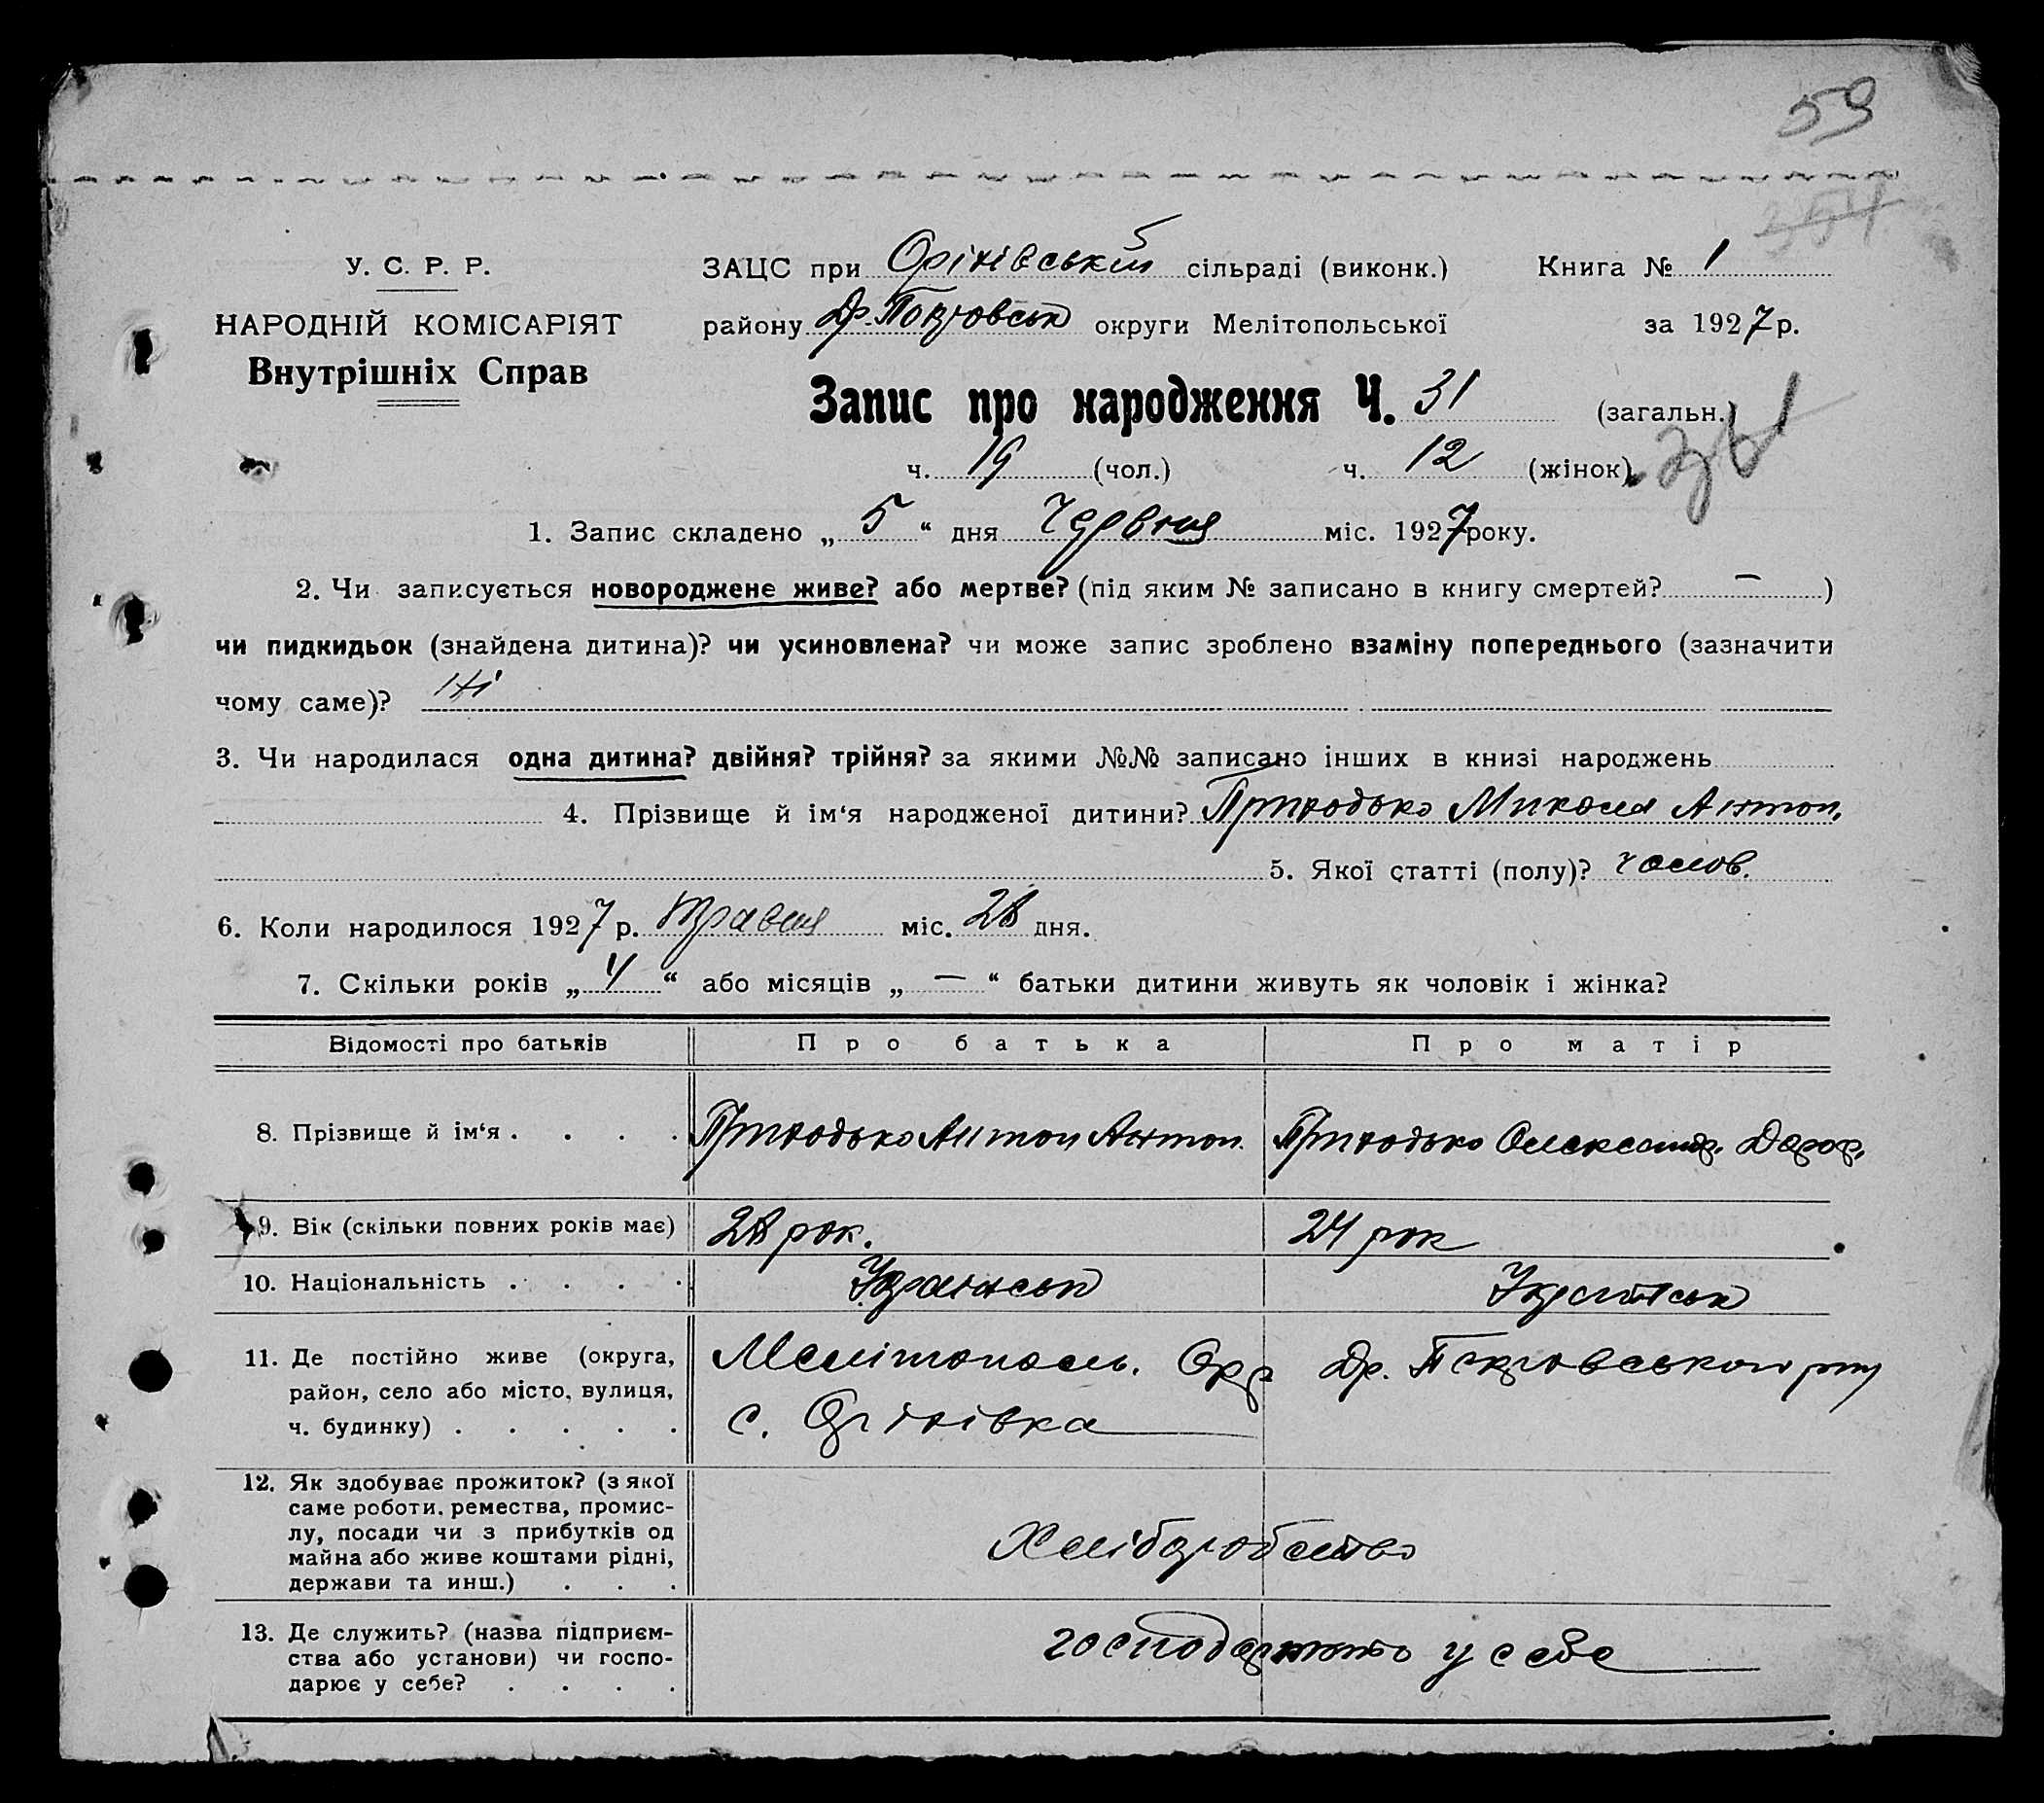 59
354
У. С. Р. Р.
НАРОДНІЙ КОМІСАРІЯТ
Внутрішніх Справ
ЗАЦС при Орінівській сільраді (виконк.) Книга № 1
району Др.-Покровськ округи Мелітопольської за 1927 р.
Запис про народження Ч. 31 (загальн.)
ч. 19 (чол.) ч. 12 (жінок)
1. Запис складено „ 5 “ дня Червня міс. 1927 року.
2. Чи записується новороджене живе? або мертве? (під яким № записано в книгу смертей? — )
чи пидкидьок (знайдена дитина)? чи усиновлена? чи може запис зроблено взаміну попереднього (зазначити
чому саме)? Ні
3. Чи народилася одна дитина? двійня? трійня? за якими №№ записано інших в книзі народжень
4. Прізвище й ім‘я народженої дитини? Приходько Микола Антон.
5. Якої статті (полу)? чолов.
6. Коли народилося 1927 р. травня міс. 28 дня.
7. Скільки років „ 4 “ або місяців „ — “ батьки дитини живуть як чоловік і жінка?
Відомості про батьків Про батька Про матір
8. Прізвище й ім‘я . . . . Приходько Антон Антон. Приходько Олександр. Дорор.
9. Вік (скільки повних років має) 28 рок. 24 рок
10. Національність . . . . Українськ Українськ
11. Де постійно живе (округа,
район, село або місто, вулиця,
ч. будинку) . . . . .
Мелітополь. Окр Др. Покровського рну
с. Орінівка
12. Як здобуває прожиток? (з якої
саме роботи, ремества, промис-
лу, посади чи з прибутків од
майна або живе коштами рідні,
держави та инш.) . . .
Хліборобство
13. Де служить? (назва підприєм-
ства або установи) чи госпо-
дарює у себе? . . . .
господарюють у себе